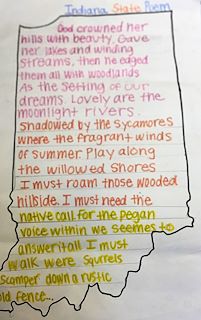 Indiana State Poem
God crowned her
hills with beauty, Gave
her lakes and winding
streams, then he edged
them all with woodlands
As the setting of our
dreams. Lovely are the
moonlight rivers.
Shadowed by the sycamores
where the fragrant winds
of summer. Play along
the willowed shores
I must roam those wooded
hillside. I must need the
native call for the pegan
voice within we seemes to
answeritall I must
walk were squrels
scamper down a rustic
old fence...